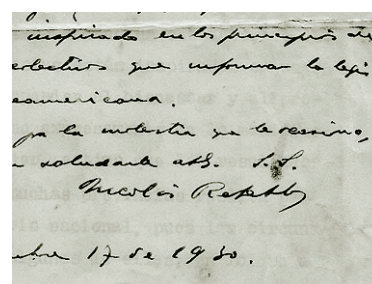 inspirado en los principios de
colectivos que informan la legis
eamericana.
la molestia que le ocasiono,
saludarle atte. S. S.
Nicolás Repetto
bre 17 de 1930.